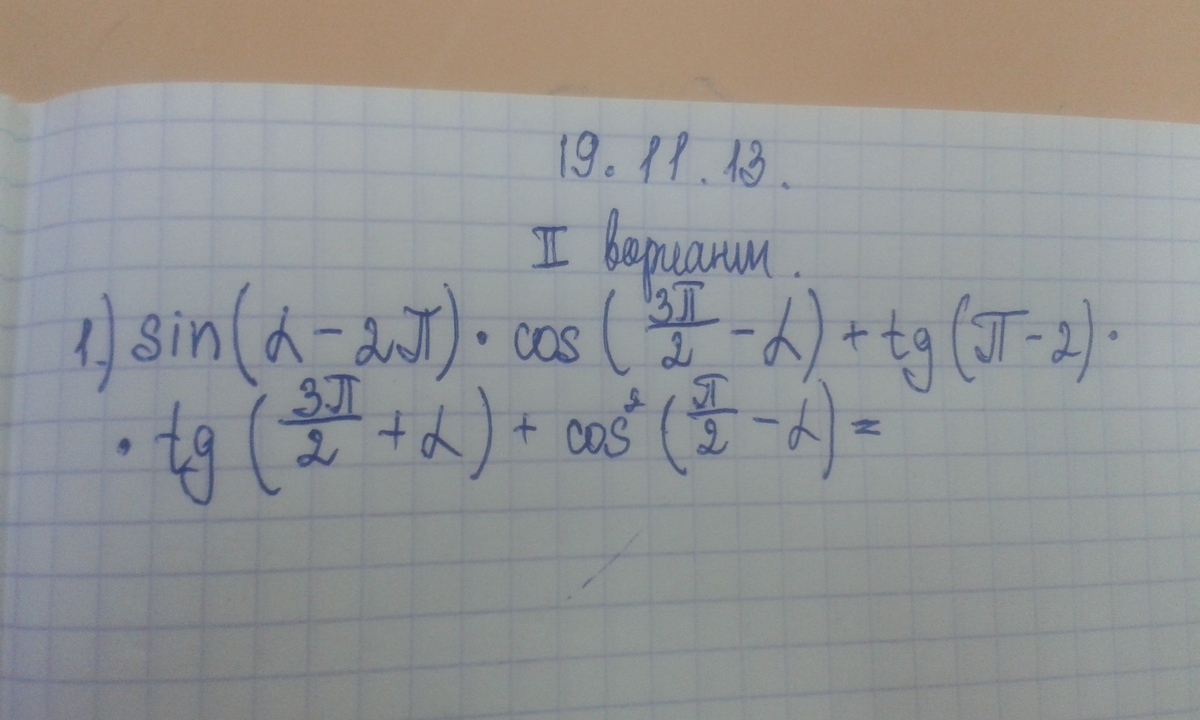 19. 11. 13.
II вариант.
1.) sin(α - 2π) · cos(3π/2 - α) + tg(π - 2) ·
· tg(3π/2 + α) + cos²(π/2 - α) =